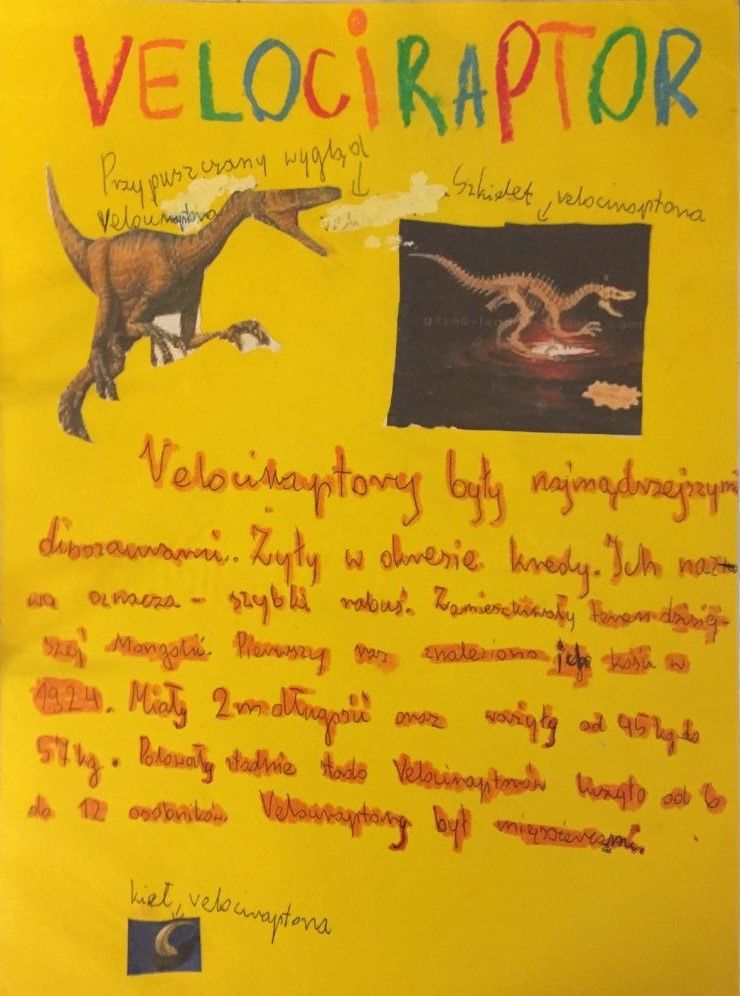 VELOCIRAPTOR
Przypuszczany wygląd
Velociraptora
Szkielet velociraptora
Velociraptory były najmądrzejszymi
dinozaurami. Żyły w okresie kredy. Ich naz
wa oznacza - szybki rabuś. Zamieszkiwały teren dzisiej-
szej Mongolii. Pierwszy raz znaleziono ich kości w
1924. Miały 2m długości oraz ważyły od 45kg do
57kg. Polowały stadnie stado Velociraptorów liczyło od 6
do 12 osobników. Velociraptory był mięsożercami.
kieł velociraptora